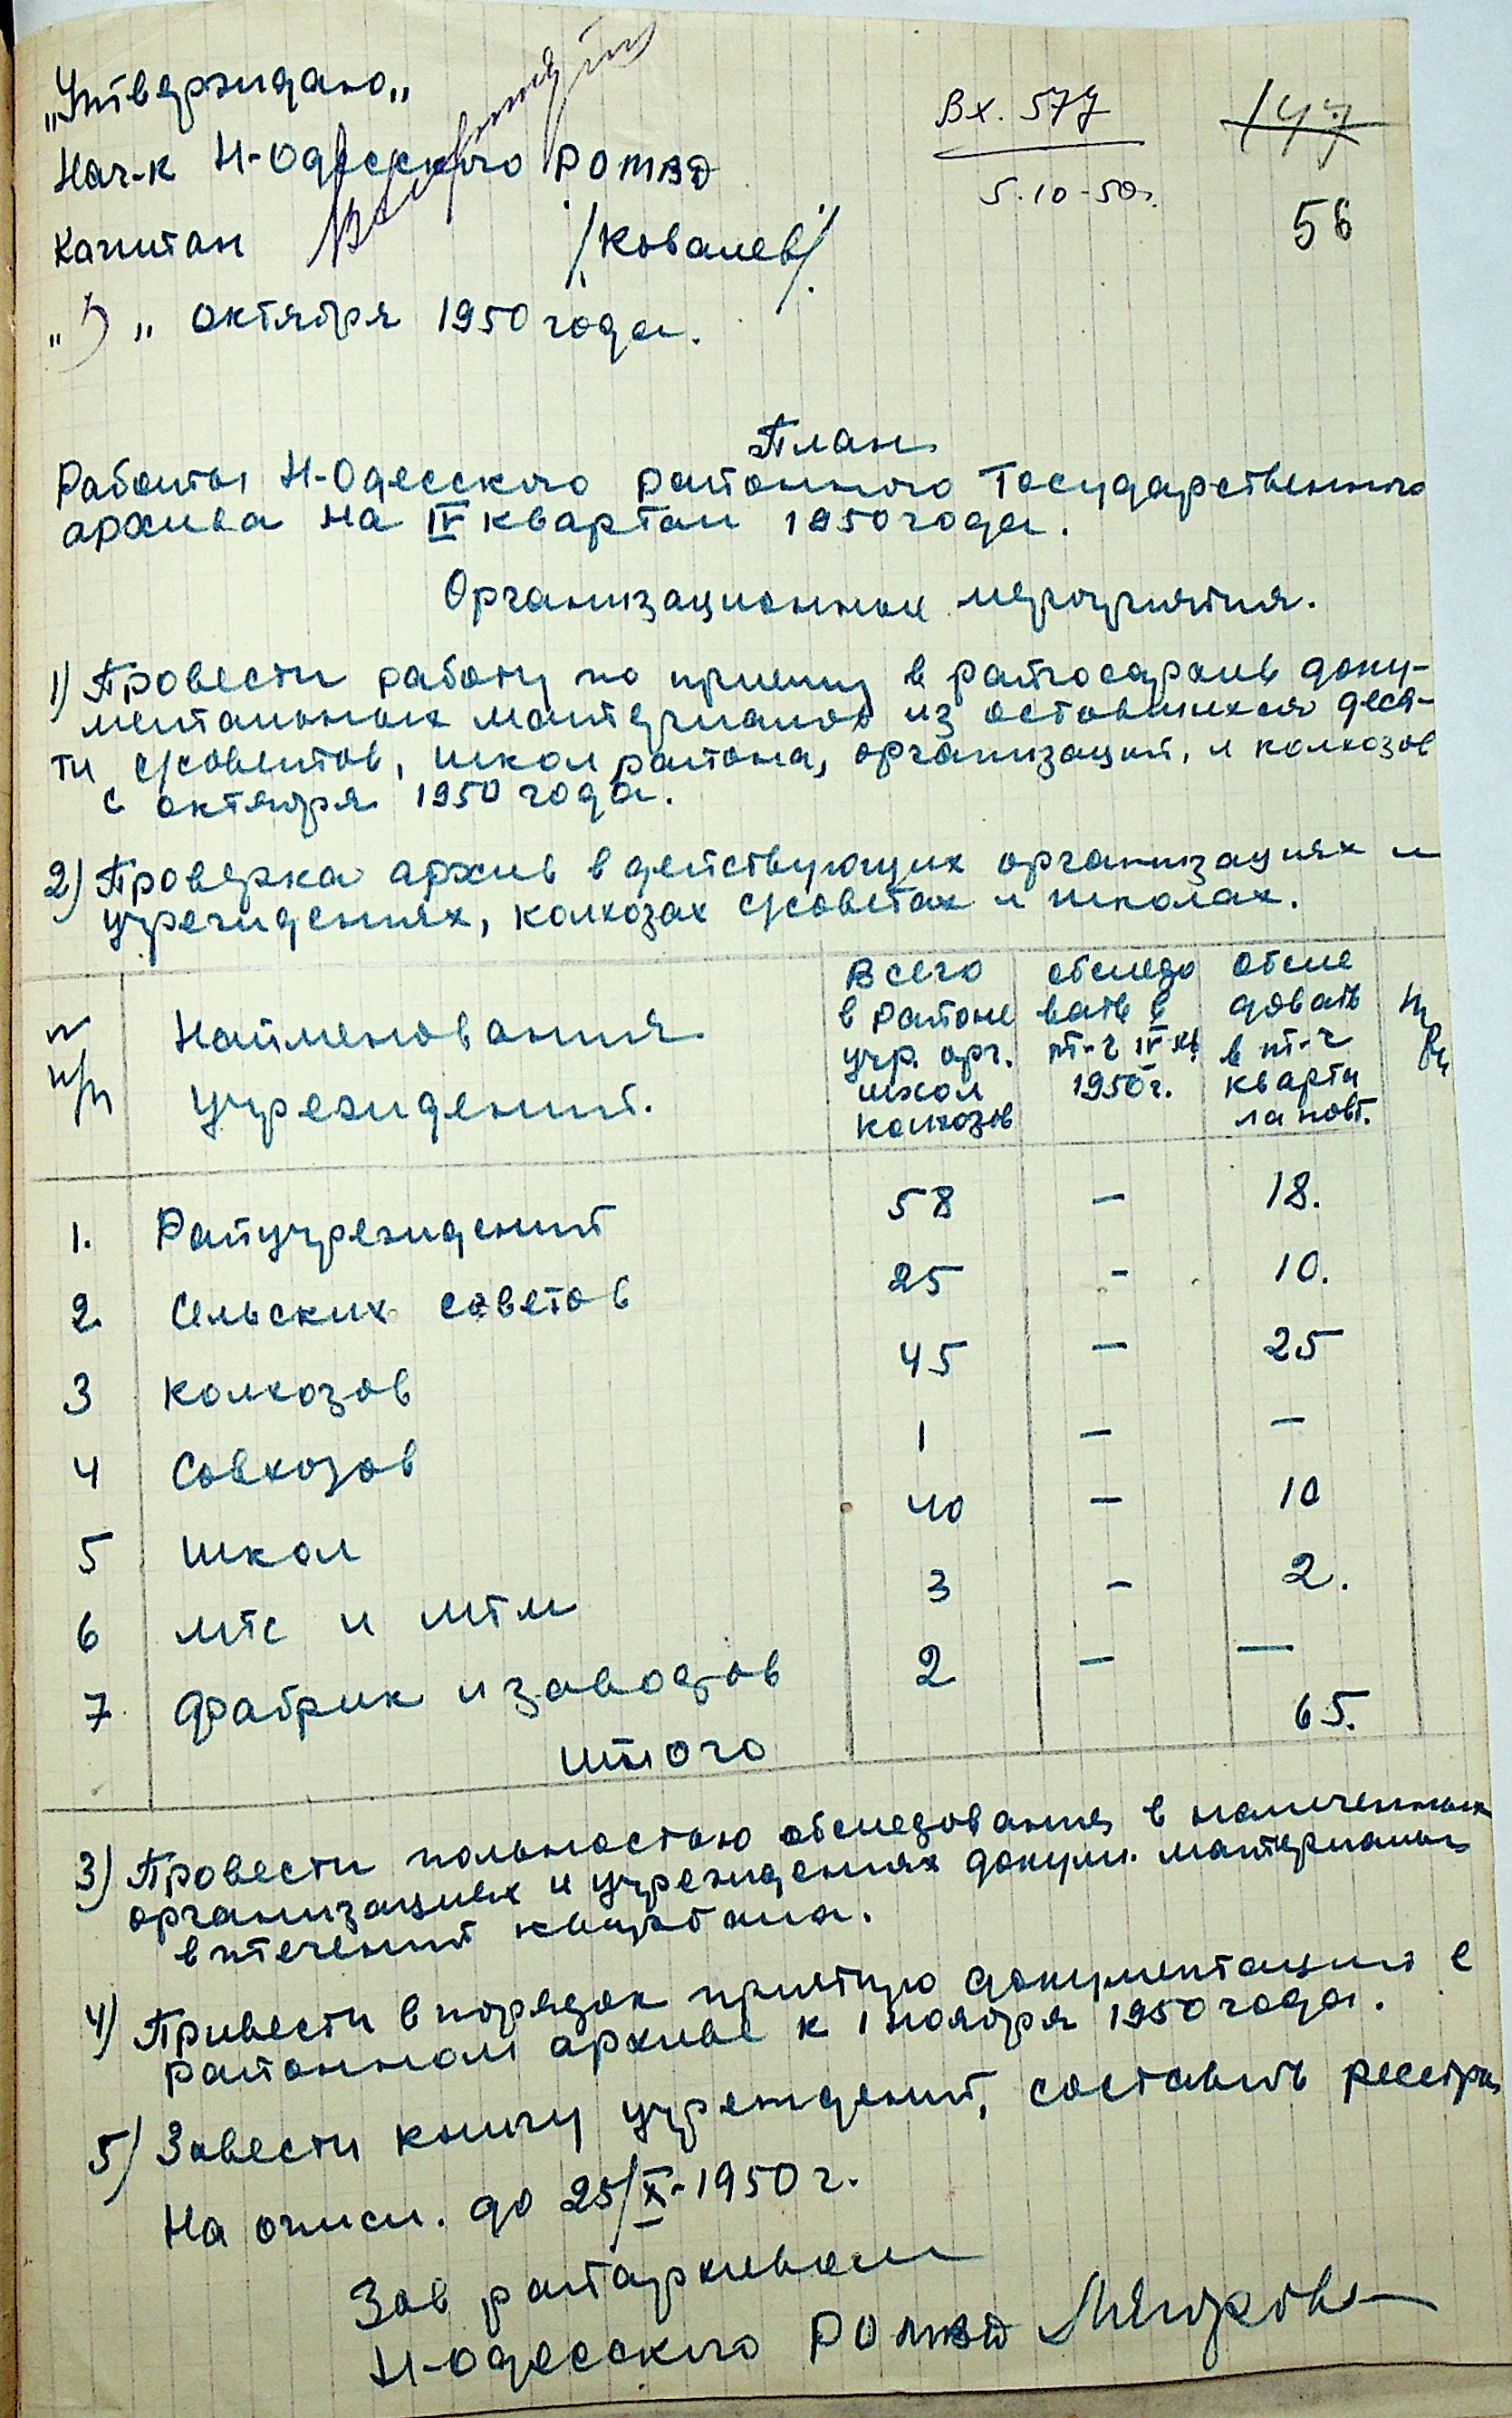 „Утверждаю„
Вх. 577
147
Нач-к Н-Одесского РОМВД
5.10-50г.
56
Капитан /Ковалев/
„5„ октября 1950 года.
План
Работы Н-Одесского районного Государственного
архива на IV квартал 1950 года.
Организационные мероприятия.
1) Провести работу по приему в райгосархив доку-
ментальных материалов из оставшихся деся-
ти с/советов, школ района, организаций, и колхозов
с октября 1950 года.
2) Проверка архив в действующих организациях и
учреждениях, колхозах с/советах и школах.
№ п/п
Наименования учреждений.
Всего в районе учр. орг. школ колхозов
обследовать в т-ч IV кв 1950г.
обследовать в т-ч квартала повт.
1. Райучреждений 58 – 18.
2. Сельских советов 25 – 10.
3 Колхозов 45 – 25
4 Совхозов 1 – –
5 Школ 40 – 10
6 МТС и МТМ 3 – 2.
7 Фабрик и заводов 2 – –
Итого 65.
3) Провести полностью обследования в намеченных
организациях и учреждениях докум. материалы
в течений квартала.
4) Привести в порядок принятую документаций в
районном архиве к 1 ноября 1950 года.
5) Завести книгу учреждений, составить реестры
На описи. до 25/X-1950 г.
Зав райархивом
Н-Одесского РОМВД